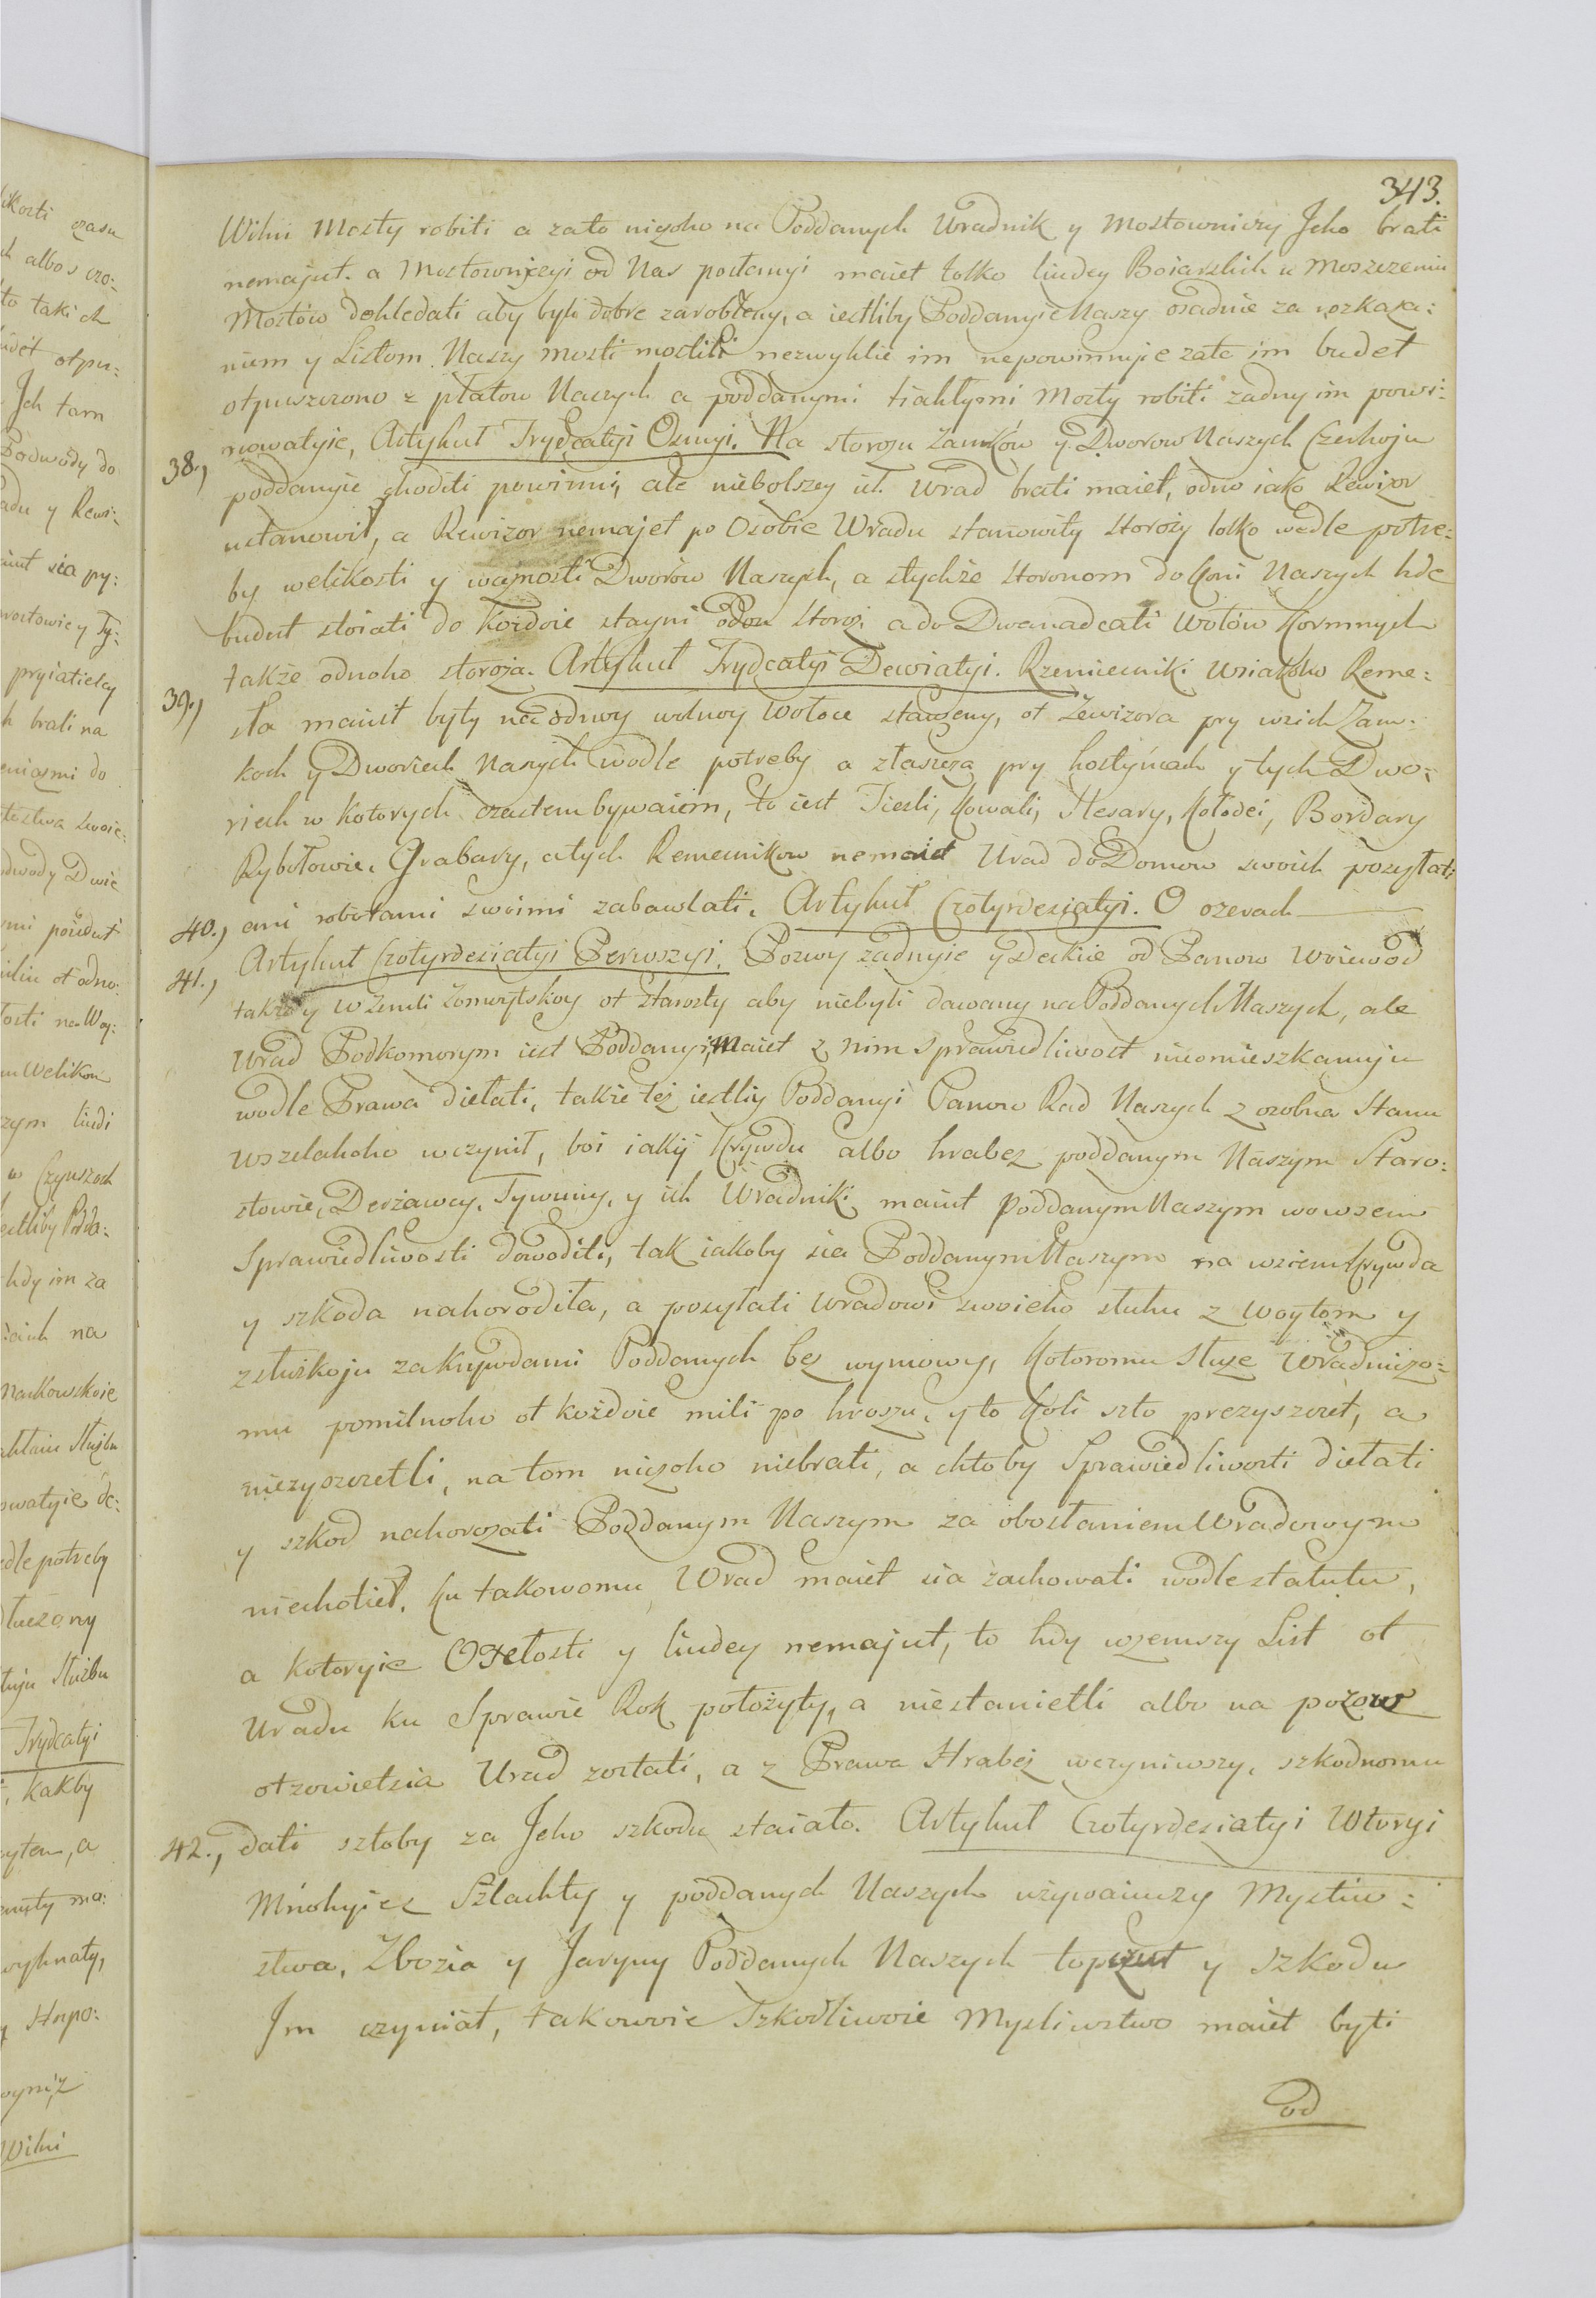 343.
Wilni Mosty robiti a zato niczoho na Poddanych Uradnik y Mostowniczy Jeho brati
nemajut. a Mostowniczyi od Nas posłanyi maiet tolko liudey Boiarskich u Moszczeniu
Mostów dohledati aby byli dobre zarobleny, a iestliby Poddanyie Naszy osadnie za rozkaza:
niem y Listom Naszy mosti mostili nezwyklie im nepowinnyie zate im budet
otpuszczono z płatow Naszych a poddanymi tiahłymi Mosty robiti żadny im powi:
38., nowatyie, Artykuł Trydcatyi Osmyi. Na storożu Zamków y Dworow Naszych Czerhoju
poddanyie choditi powinni, ale niebolszey ich Wrad brati maiet, odno iako Rewizor
ustanowił, a Rewizor nemajet po Osobie Wradu stanowity storoży tolko wedle potre:
by welikosti y ważnosti Dworów Naszych, a stychże storonom do Koni Naszych hde
budut stoiati do Kożdoie stayni odon storoż a do Dwanadcati Wołów Kormnych
także odnoho storoża. Artykuł Trydcatyi Dewiatyi. Rzemiesniki Wsiakoho Reme:
39., sła maiut byty na odnoy wolnoy Wołoce stawleny, ot Rewizora pry wsich Zam:
koch y Dworiech Naszych wodle potreby a złaszcza pry hostyńcach y tych Dwo:
riech w kotorych czastem bywaiem, to iest Tiesli, Kowali, Slesary, Kołodei, Bordary
Rybołowie, Grabary, a tych Remesnikow nemaiet Urad do Domow swoich posyłati
40., ani robotami swoimi zabawlati. Artykuł Czotyrdesiatyi. O ozerach
41., Artykuł Czotyrdesiatyi Perwszyi. Pozwy żadnyie y Deckie od Panow Woiewod
także y w Zemli Żomoytskoy ot Starosty aby niebyli dawany na Poddanych Naszych, ale
Wrad Podkomorym iest Poddanyi, maiet z nim Sprawiedliwost nieomieszkannju
wodle Prawa diełati, także też iestliy Poddanyi Panow Rad Naszych z osobna Stanu
wszelakoho uczynił, boi iakij Krywdu albo hrabez poddanym Naszym Staro:
stowie, Derżawcy, Tywuny, y ich Wradniki maiut Poddanym Naszym wo wsiem
Sprawiedliwosti dowoditi, tak iakoby sia Poddanym Naszym na wsiem Krywda
y szkoda nahorodiła, a posyłati Wradowi swoieho słuhu z Woytom y
z służkoju za Krywdami Poddanych bez wymowy, Kotoromu Słuze Wradniczo:
mu pomilnoho ot kożdoie mili po hroszu, y to Koli szto prezyszczet, a
niezyszczetli, na tom niczoho niebrati, a chtoby Sprawiedliwosti diełati
y szkod nahorożati Poddanym Naszym za obosłaniem Wradowym
niechotieł, ku takowomu Wrad maiet sia zachowati wodle statutu,
a kotoryie Osełosti y liudey nemajut, to hdy wzemszy List ot
Uradu ku Sprawie Rok położyty, a niestanietli albo na pozow
otzowietsia Urad zostati, a z Prawa Hrabeż uczyniwszy, szkodnomu
42., dati sztoby za Jeho szkodu staiało. Artykuł Czotyrdesiatyi Wtoryi
Mnohyie z Szlachty y poddanych Naszych używaiuczy Mysliw:
stwa, Zbożia y Jaryny Poddanych Naszych topczut y szkodu
Im czyniat, takowoie Szkodliwoie Mysliwstwo maiet byti
od